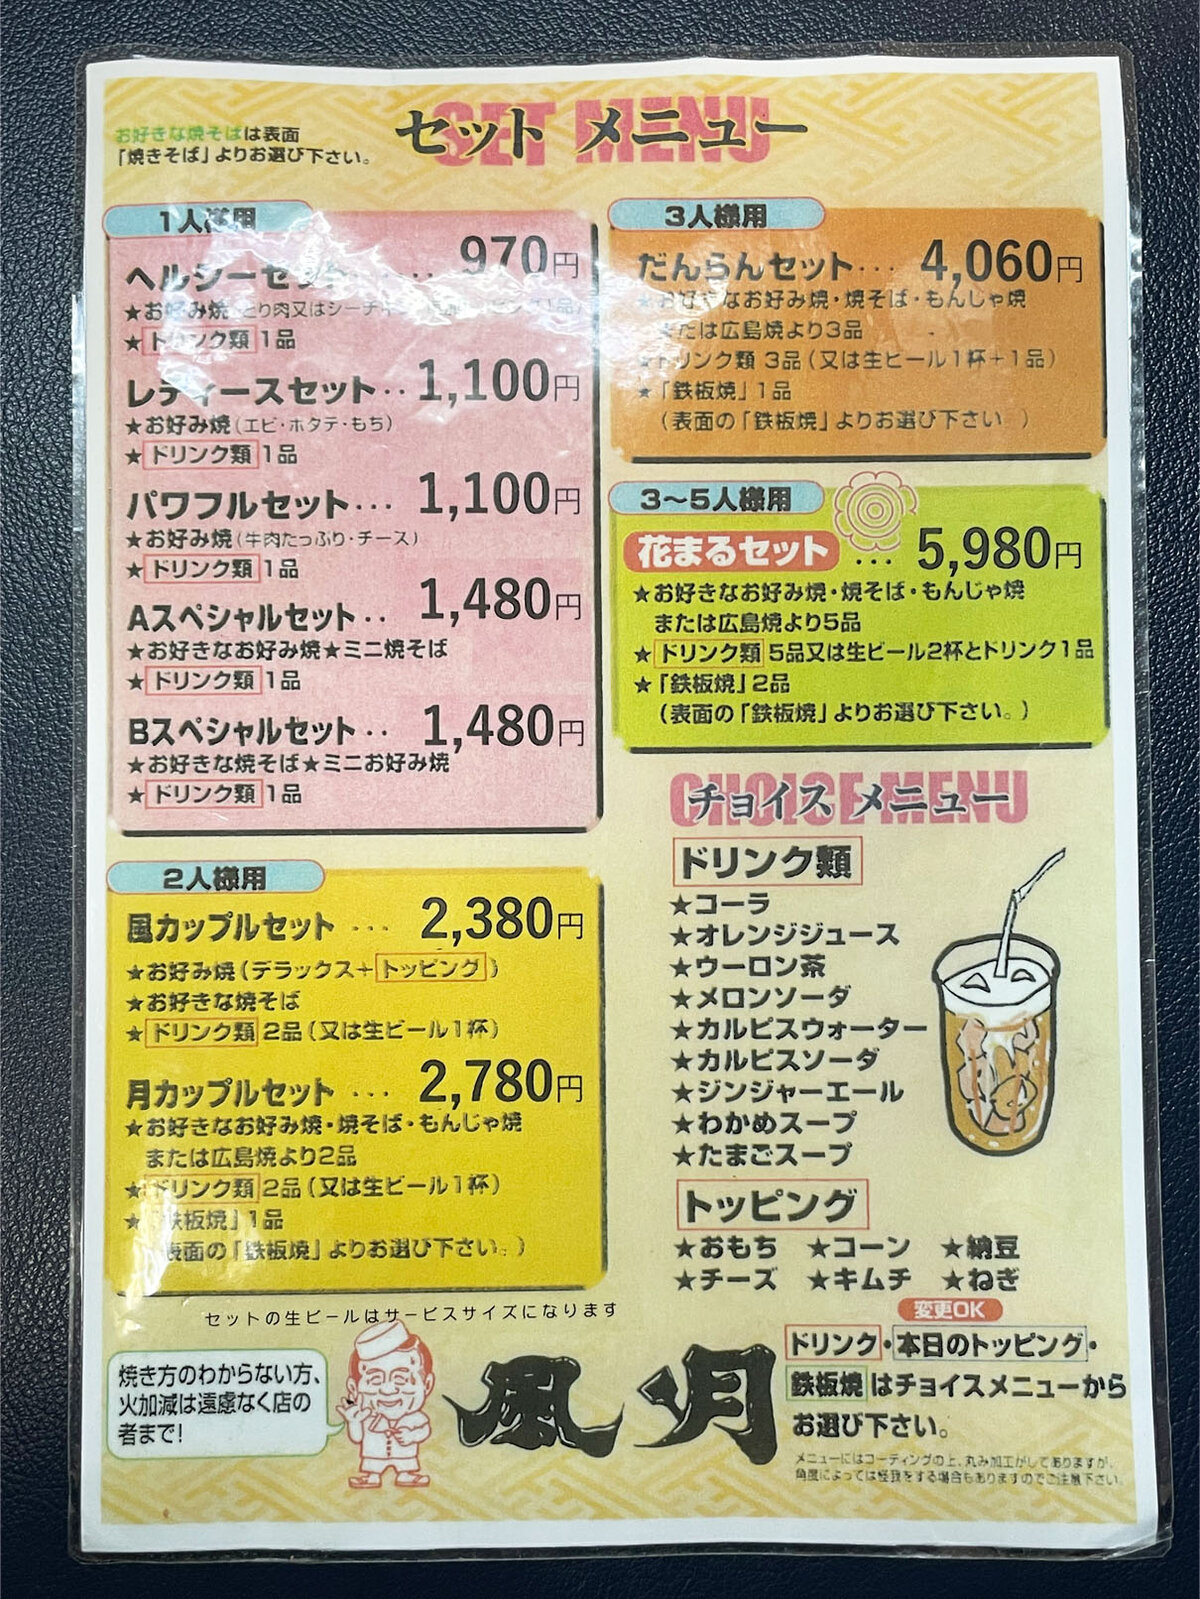 お好きな焼そばは表面
「焼きそば」よりお選び下さい。
SET MENU
セット メニュー
1人様用
ヘルシーセット・・・ 970円
★お好み焼
★ドリンク類 1品
レディースセット・・ 1,100円
★お好み焼(エビ・ホタテ・もち)
★ドリンク類 1品
パワフルセット・・・ 1,100円
★お好み焼(牛肉たっぷり・チース)
★ドリンク類 1品
Aスペシャルセット・・ 1,480円
★お好きなお好み焼★ミニ焼そば
★ドリンク類 1品
Bスペシャルセット・・ 1,480円
★お好きな焼そば★ミニお好み焼
★ドリンク類 1品
2人様用
風カップルセット ・・・ 2,380円
★お好み焼(デラックス+トッピング)
★お好きな焼そば
★ドリンク類 2品(又は生ビール1杯)
月カップルセット ・・・ 2,780円
★お好きなお好み焼・焼そば・もんじゃ焼
または広島焼より2品
★ドリンク類 2品(又は生ビール1杯)
★「鉄板焼」1品
(表面の「鉄板焼」よりお選び下さい。)
セットの生ビールはサービスサイズになります
3人様用
だんらんセット・・・ 4,060円
★お好きなお好み焼・焼そば・もんじゃ焼
または広島焼より3品
★ドリンク類 3品(又は生ビール1杯+1品)
★「鉄板焼」1品
(表面の「鉄板焼」よりお選び下さい。)
3〜5人様用
花まるセット ・・・ 5,980円
★お好きなお好み焼・焼そば・もんじゃ焼
または広島焼より5品
★ドリンク類 5品又は生ビール2杯とドリンク1品
★「鉄板焼」2品
(表面の「鉄板焼」よりお選び下さい。)
CHOICE MENU
チョイス メニュー
ドリンク類
★コーラ
★オレンジジュース
★ウーロン茶
★メロンソーダ
★カルピスウォーター
★カルピスソーダ
★ジンジャーエール
★わかめスープ
★たまごスープ
トッピング
★おもち ★コーン ★納豆
★チーズ ★キムチ ★ねぎ
変更OK
ドリンク・本日のトッピング・
鉄板焼はチョイスメニューから
お選び下さい。
メニューにはコーディングの上、丸み加工がしてありますが、
角度によっては怪我をする場合もありますのでご注意下さい。
焼き方のわからない方、
火加減は遠慮なく店の
者まで!
風月